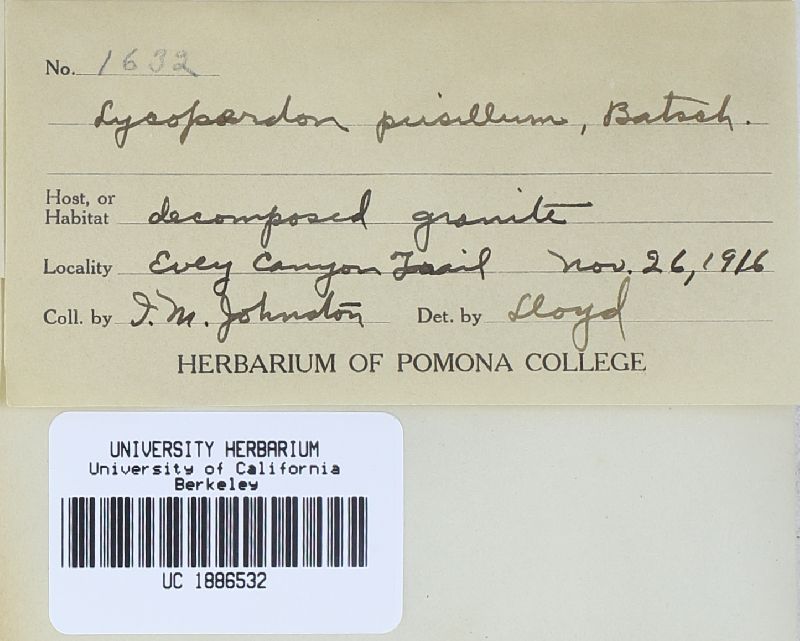 No. 1632
Lycoperdon pusillum, Batsch.
Host, or
Habitat decomposed granite
Locality Evey Canyon Trail Nov. 26, 1916
Coll. by I. M. Johnston Det. by Lloyd
HERBARIUM OF POMONA COLLEGE
UNIVERSITY HERBARIUM
University of California
Berkeley
UC 1886532